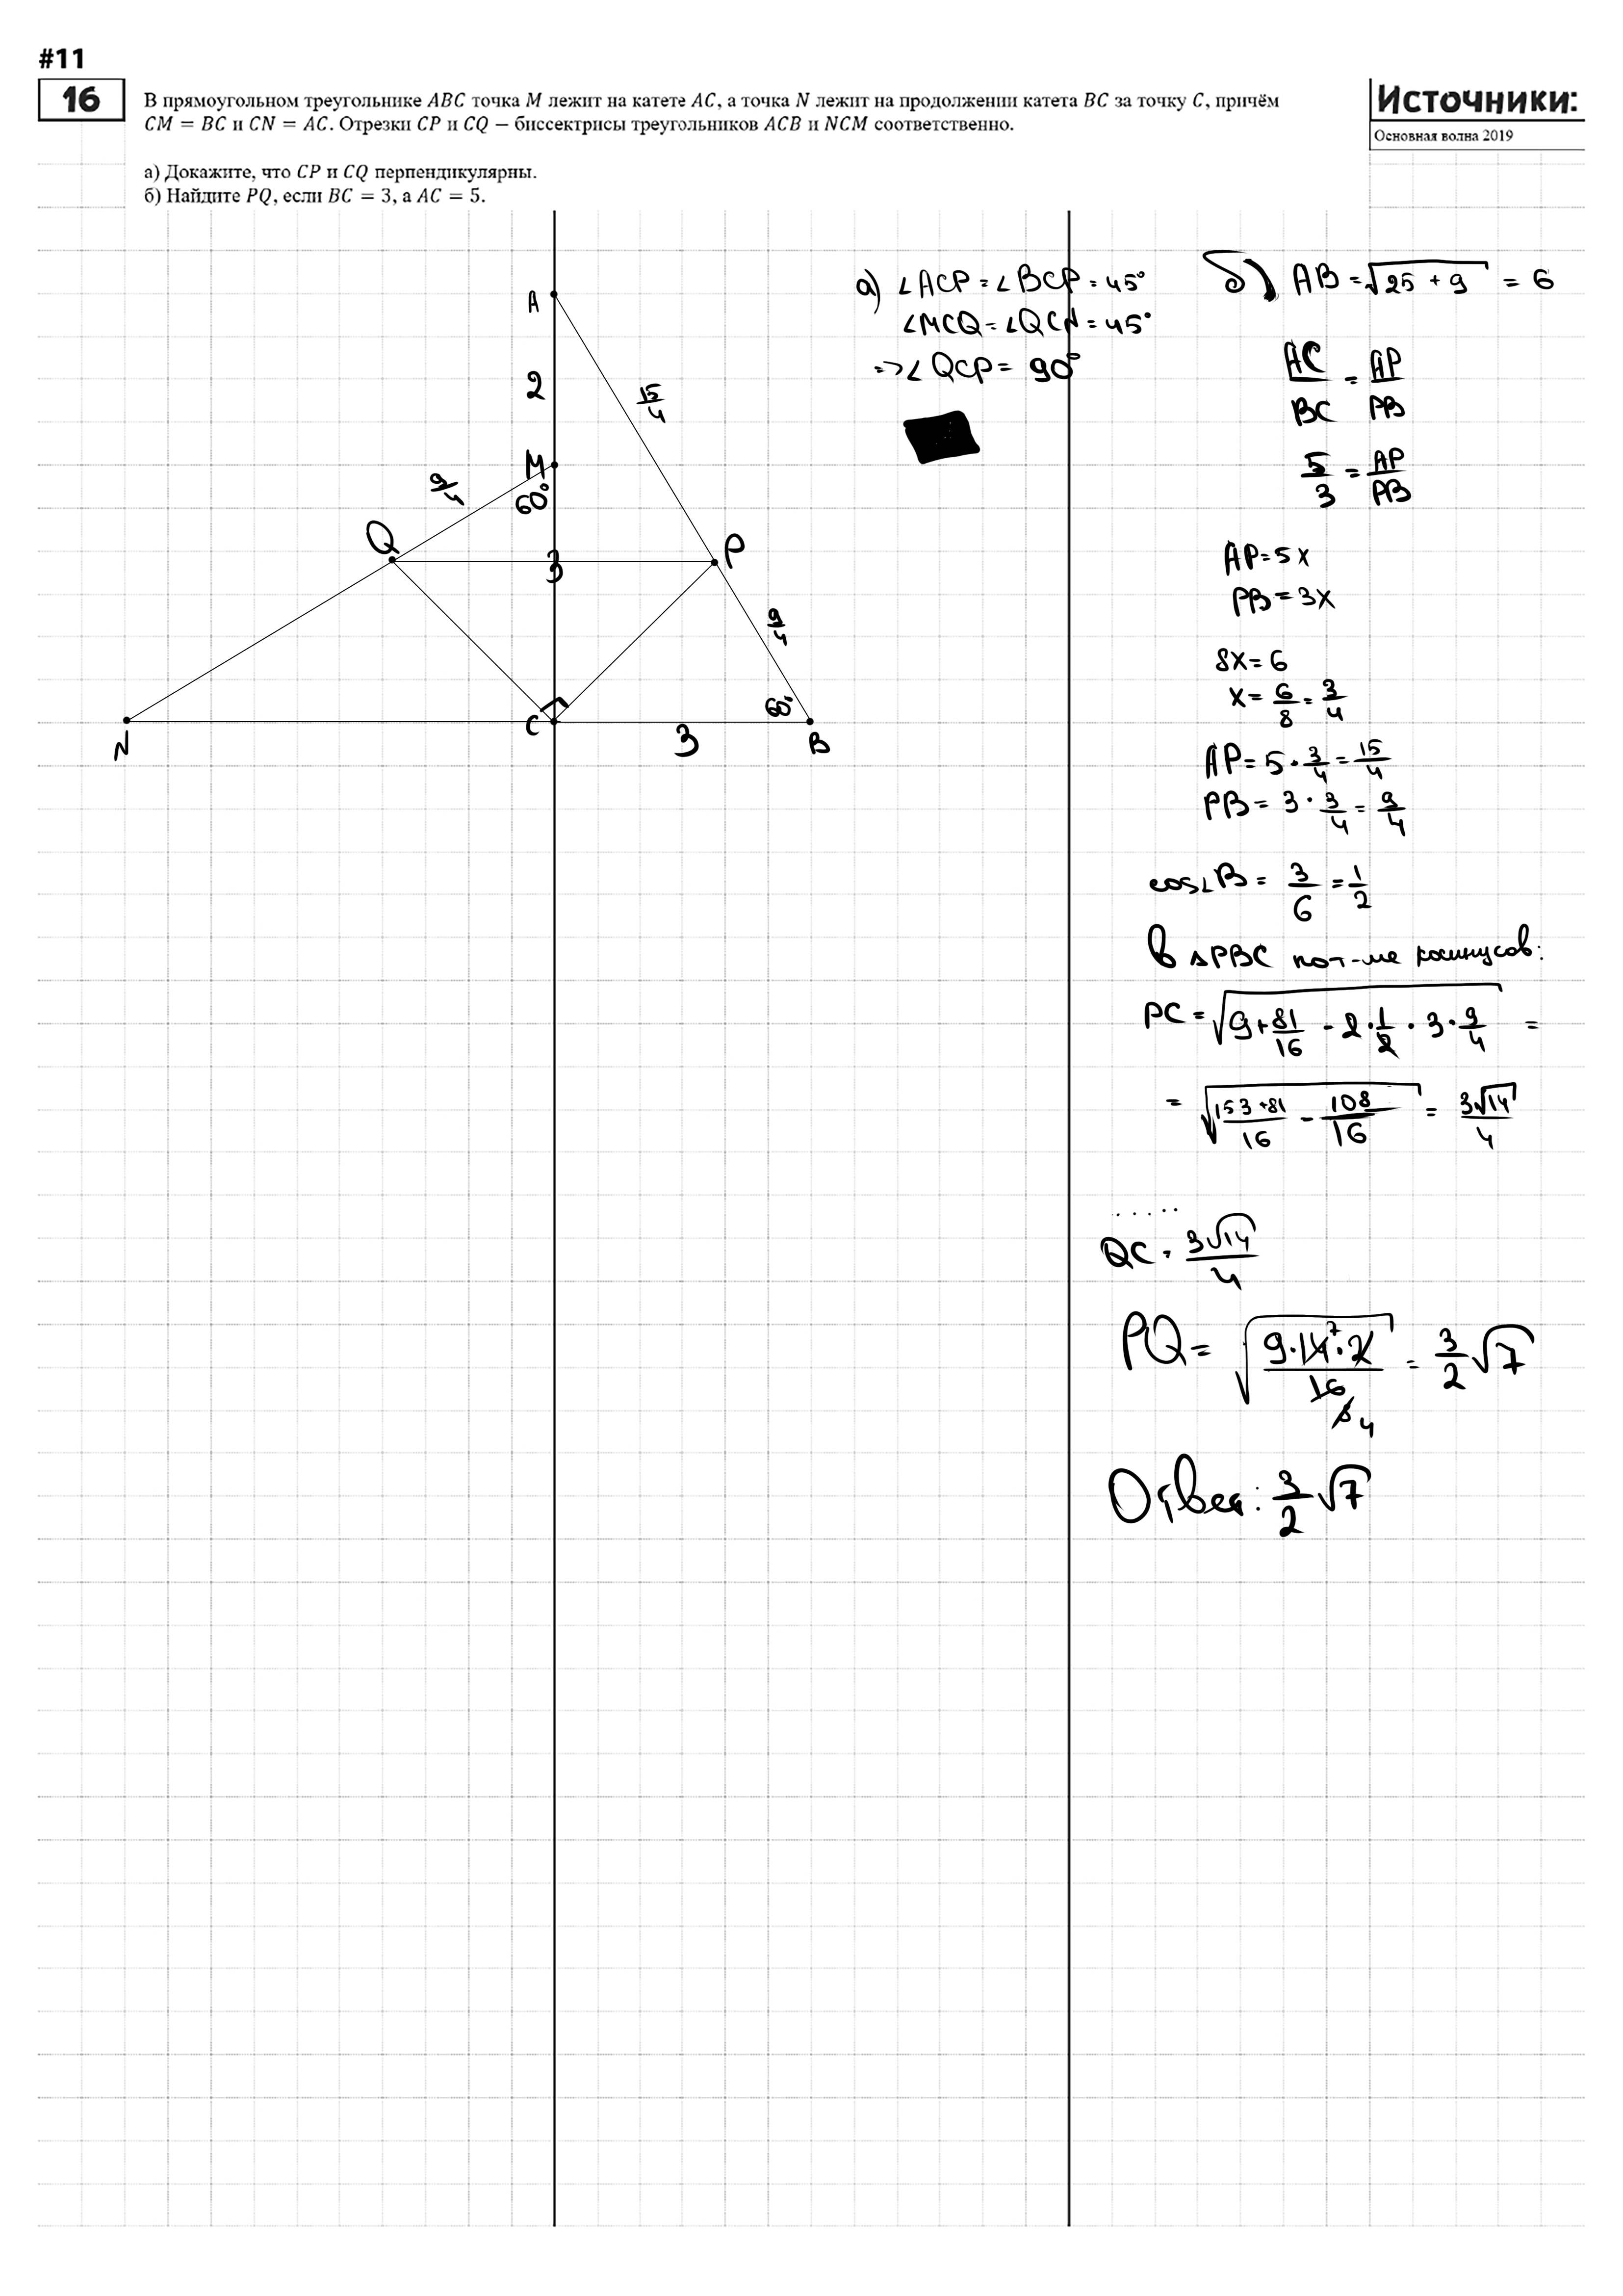 #11
16
В прямоугольном треугольнике ABC точка M лежит на катете AC, а точка N лежит на продолжении катета BC за точку C, причём
CM = BC и CN = AC. Отрезки CP и CQ – биссектрисы треугольников ACB и NCM соответственно.
а) Докажите, что CP и CQ перпендикулярны.
б) Найдите PQ, если BC = 3, а AC = 5.
Источники:
Основная волна 2019
A
2
15/4
M
60°
9/4
Q
3
P
9/4
60°
C
N
3
B
а) ∠ACP = ∠BCP = 45°
∠MCQ = ∠QCN = 45°
=> ∠QCP = 90°
б) AB = √(25 + 9) = 6
AC/BC = AP/PB
5/3 = AP/PB
AP = 5x
PB = 3x
8x = 6
x = 6/8 = 3/4
AP = 5 · 3/4 = 15/4
PB = 3 · 3/4 = 9/4
cos∠B = 3/6 = 1/2
В △PBC по т-ме косинусов:
PC = √(9 + 81/16 - 2 · 1/2 · 3 · 9/4) =
= √((153+81)/16 - 108/16) = 3√14/4
.....
QC = 3√14/4
PQ = √(9·14·2/16) = 3/2 √7
7
8 4
Ответ: 3/2 √7